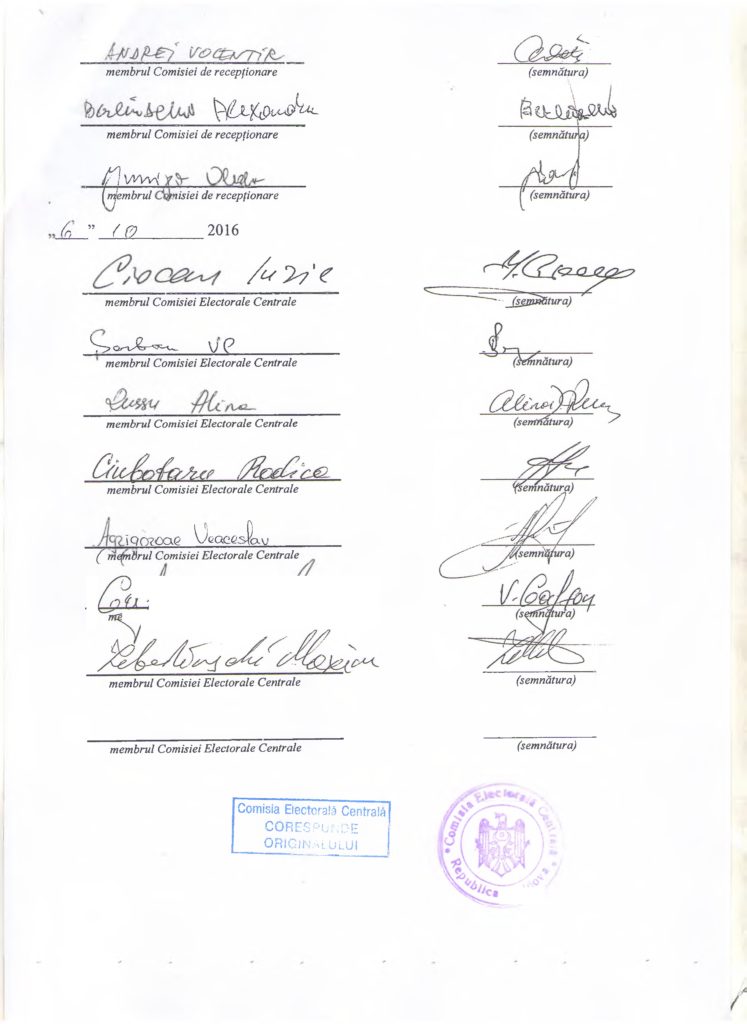 ANDREI VOCENTIR
membrul Comisiei de recepționare (semnătura)
Alexandru
membrul Comisiei de recepționare (semnătura)
membrul Comisiei de recepționare (semnătura)
„6” 10 2016
Ciocan Iurie
membrul Comisiei Electorale Centrale (semnătura)
Șarban VP
membrul Comisiei Electorale Centrale (semnătura)
Russu Alina
membrul Comisiei Electorale Centrale (semnătura)
Ciubotaru Rodica
membrul Comisiei Electorale Centrale (semnătura)
Agrigoroae Veaceslav
membrul Comisiei Electorale Centrale (semnătura)
V. Gafton
me (semnătura)
Lebedinschi Maxim
membrul Comisiei Electorale Centrale (semnătura)
membrul Comisiei Electorale Centrale (semnătura)
Comisia Electorală Centrală
CORESPUNDE
ORIGINALULUI
Comisia Electorală Centrală
Republica